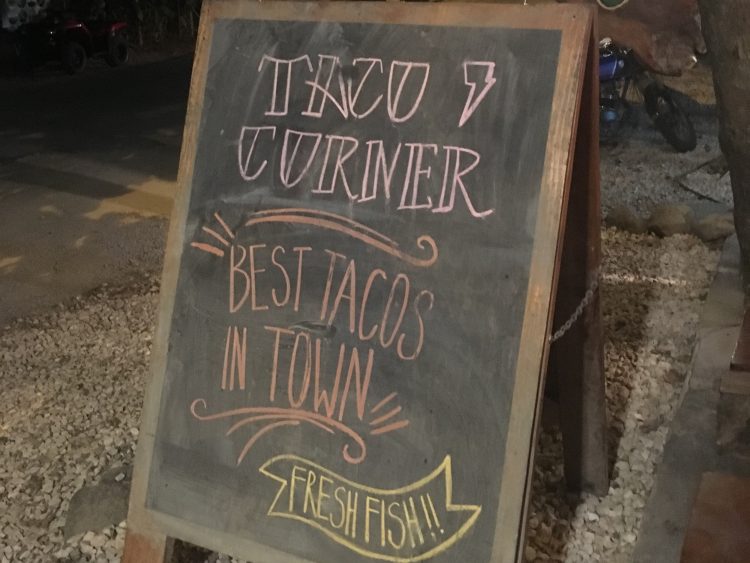 TACO
CORNER
BEST TACOS
IN TOWN
FRESH FISH!!